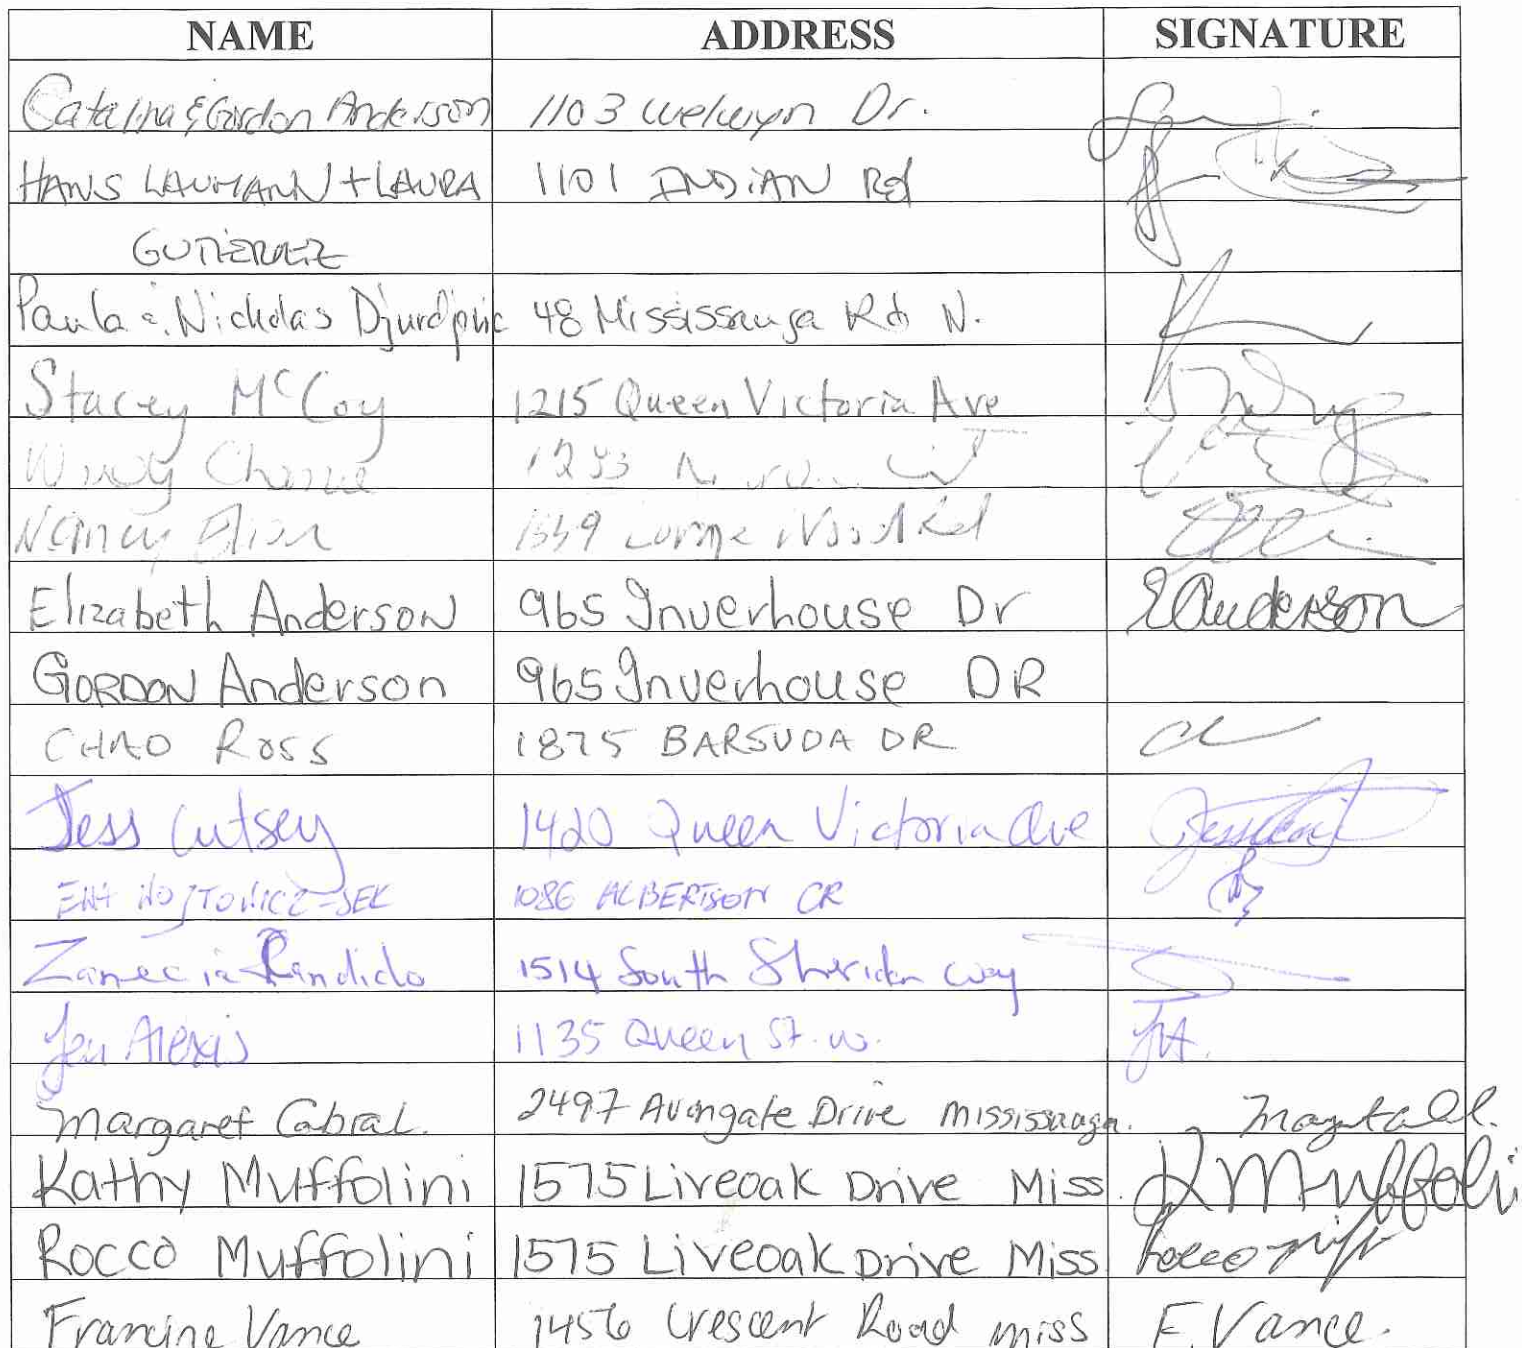 NAME ADDRESS SIGNATURE
Catalina & Gordon Anderson 1103 Welwyn Dr.
HANS LAUMANN + LAURA 1101 INDIAN Rd
GUTIERREZ
Paula & Nicholas 48 Mississauga Rd N.
Stacey McCoy 1215 Queen Victoria Ave
1233
Nancy 1559 Lorne Wood Rd
Elizabeth Anderson 965 Inverhouse Dr EAnderson
GORDON Anderson 965 Inverhouse DR
CHAD ROSS 1875 BARSUDA DR
Jess Cutsey 1420 Queen Victoria Ave
EWA WOJTOWICZ-SEK 1086 ALBERTSON CR
Candido 1514 South Sheridan Way
Jen Alexis 1135 Queen St. W. JA.
Margaret Cabral. 2497 Avongate Drive Mississauga.
Kathy Muffolini 1575 Liveoak Drive Miss. K Muffolini
Rocco Muffolini 1575 Liveoak Drive Miss Rocco
Francine Vance 1456 Crescent Road miss F. Vance.